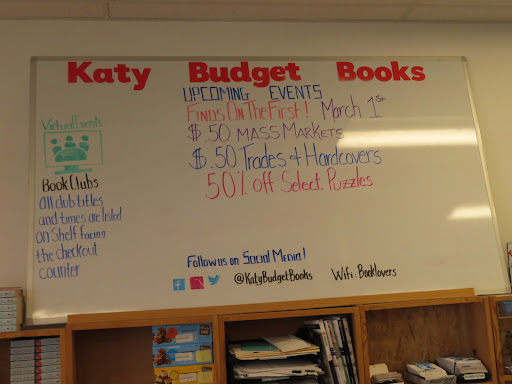 Katy Budget Books
UPCOMING EVENTS
FINDS ON THE FIRST! March 1st
$.50 MASS MARKETS
$.50 Trades & Hardcovers
50% off Select Puzzles
Virtual Events
Book Clubs
all club titles
and times are listed
on Shelf facing
the checkout
counter
Follow us on Social Media!
@KatyBudgetBooks Wifi: Booklovers